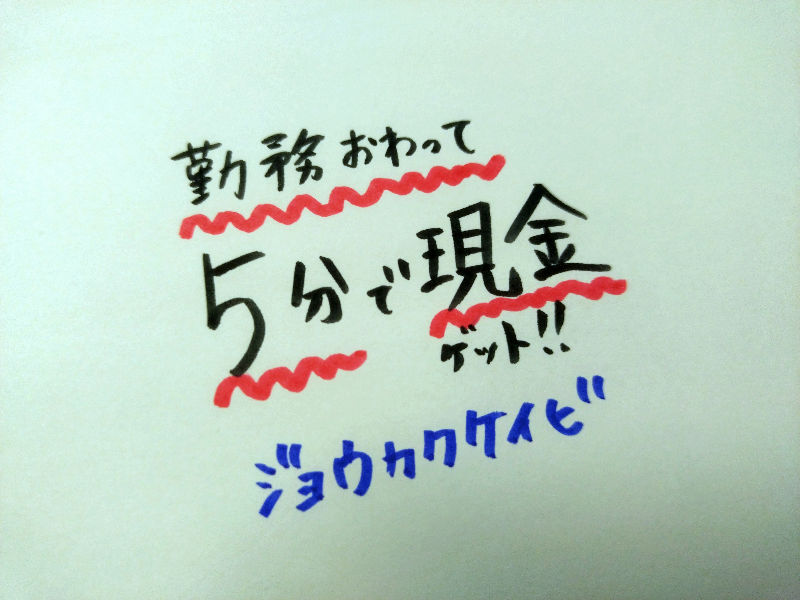 勤務おわって
5分で現金
ゲット!!
ジョウカクケイビ